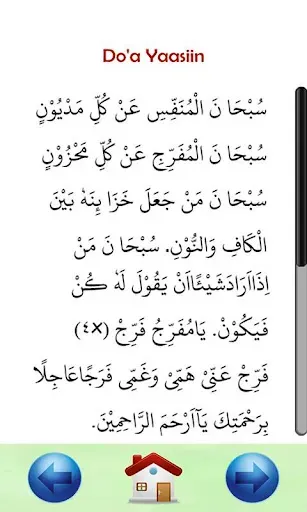 Do'a Yaasiin
سُبْحَا نَ الْمُنَفِّسِ عَنْ كُلِّ مَدْيُوْنٍ
سُبْحَا نَ الْمُفَرِّجِ عَنْ كُلِّ مَحْزُوْنٍ
سُبْحَا نَ مَنْ جَعَلَ خَزَا ئِنَهٗ بَيْنَ
الْكَافِ وَالنُّوْنِ. سُبْحَا نَ مَنْ
اِذَااَرَادَشَيْئًااَنْ يَقُوْلَ لَهٗ كُنْ
فَيَكُوْنُ. يَامُفَرِّجُ فَرِّجْ (٤x)
فَرِّجْ عَنِّيْ هَمِّيْ وَغَمِّيْ فَرَجًاعَاجِلًا
بِرَحْمَتِكَ يَآاَرْحَمَ الرَّاحِمِيْنَ.